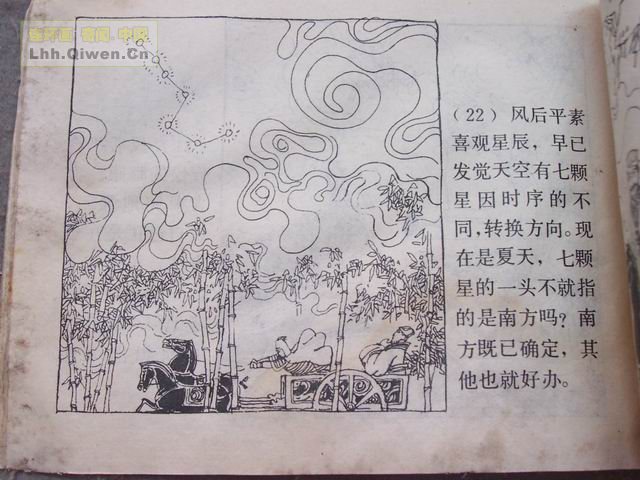 连环画 奇闻.中国
Lhh.Qiwen.Cn
（22）风后平素
喜观星辰，早已
发觉天空有七颗
星因时序的不
同，转换方向。现
在是夏天，七颗
星的一头不就指
的是南方吗？南
方既已确定，其
他也就好办。